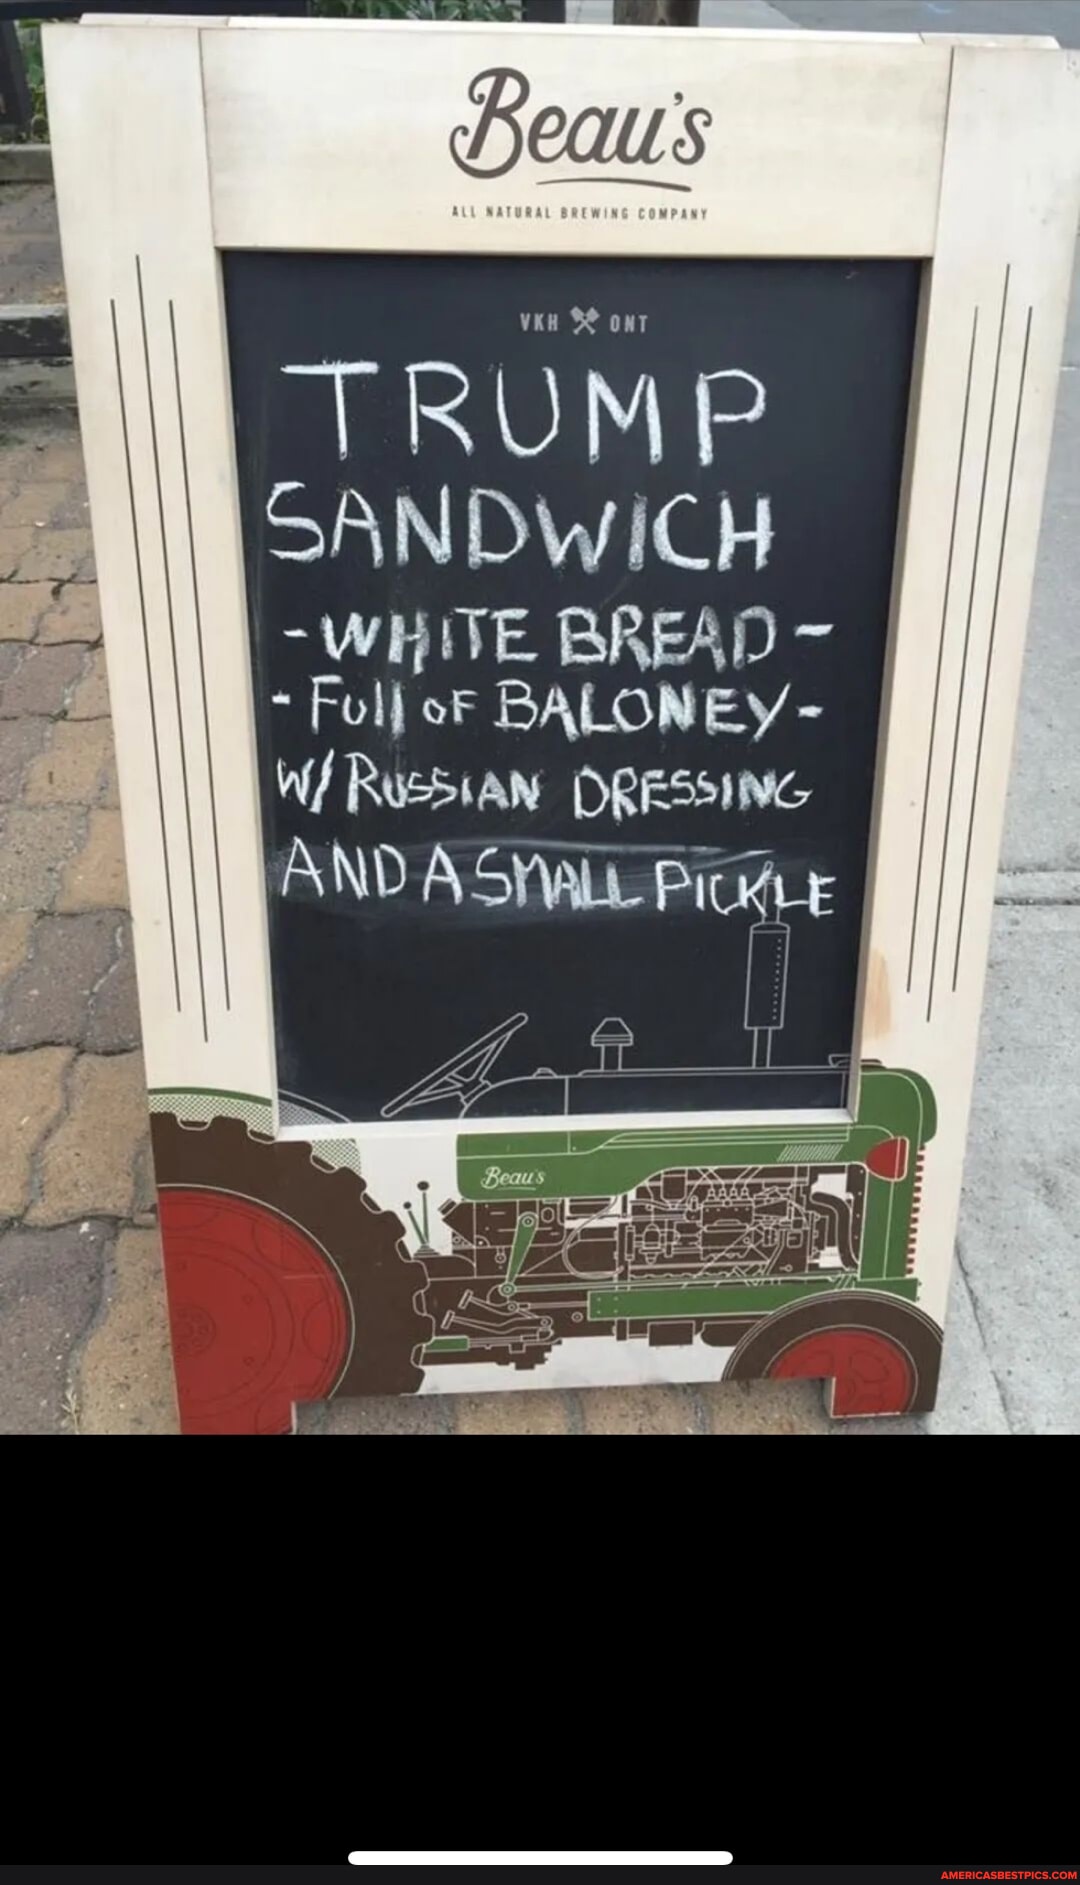 Beau's
ALL NATURAL BREWING COMPANY
VKH ONT
TRUMP
SANDWICH
-WHITE BREAD-
-Full OF BALONEY-
W/ RUSSIAN DRESSING
AND A SMALL PICKLE
Beau's
AMERICASBESTPICS.COM